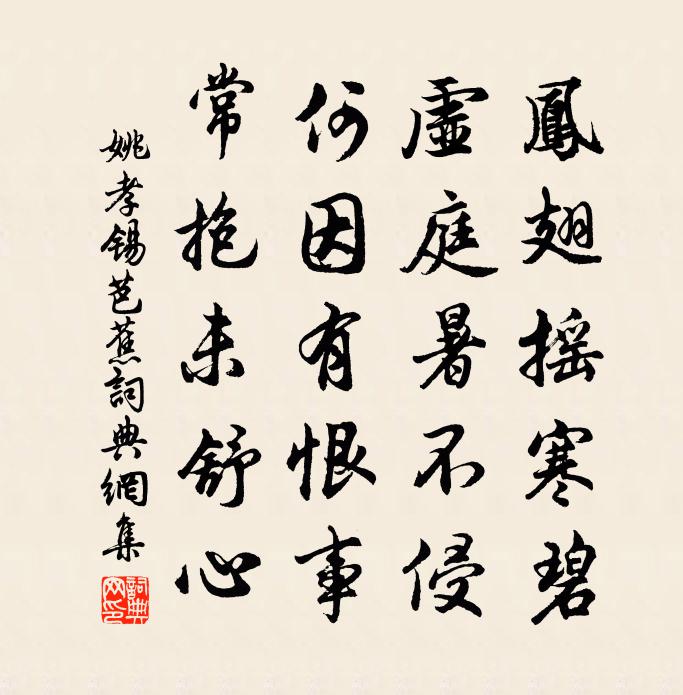 鳳翅搖寒碧
虛庭暑不侵
何因有恨事
常抱未舒心
姚孝錫芭蕉詞典網集
詞典網印